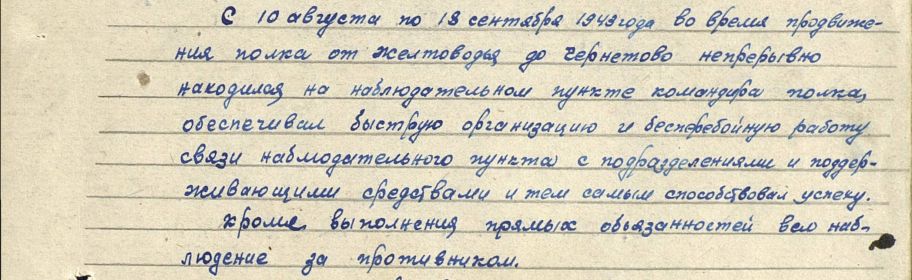 С 10 августа по 18 сентября 1943 года во время продвиже-
ния полка от Желтоводья до Чернетово непрерывно
находился на наблюдательном пункте командира полка,
обеспечивал быструю организацию и бесперебойную работу
связи наблюдательного пункта с подразделениями и поддер-
живающими средствами и тем самым способствовал успеху.
Кроме выполнения прямых обязанностей вел наб-
людение за противником.